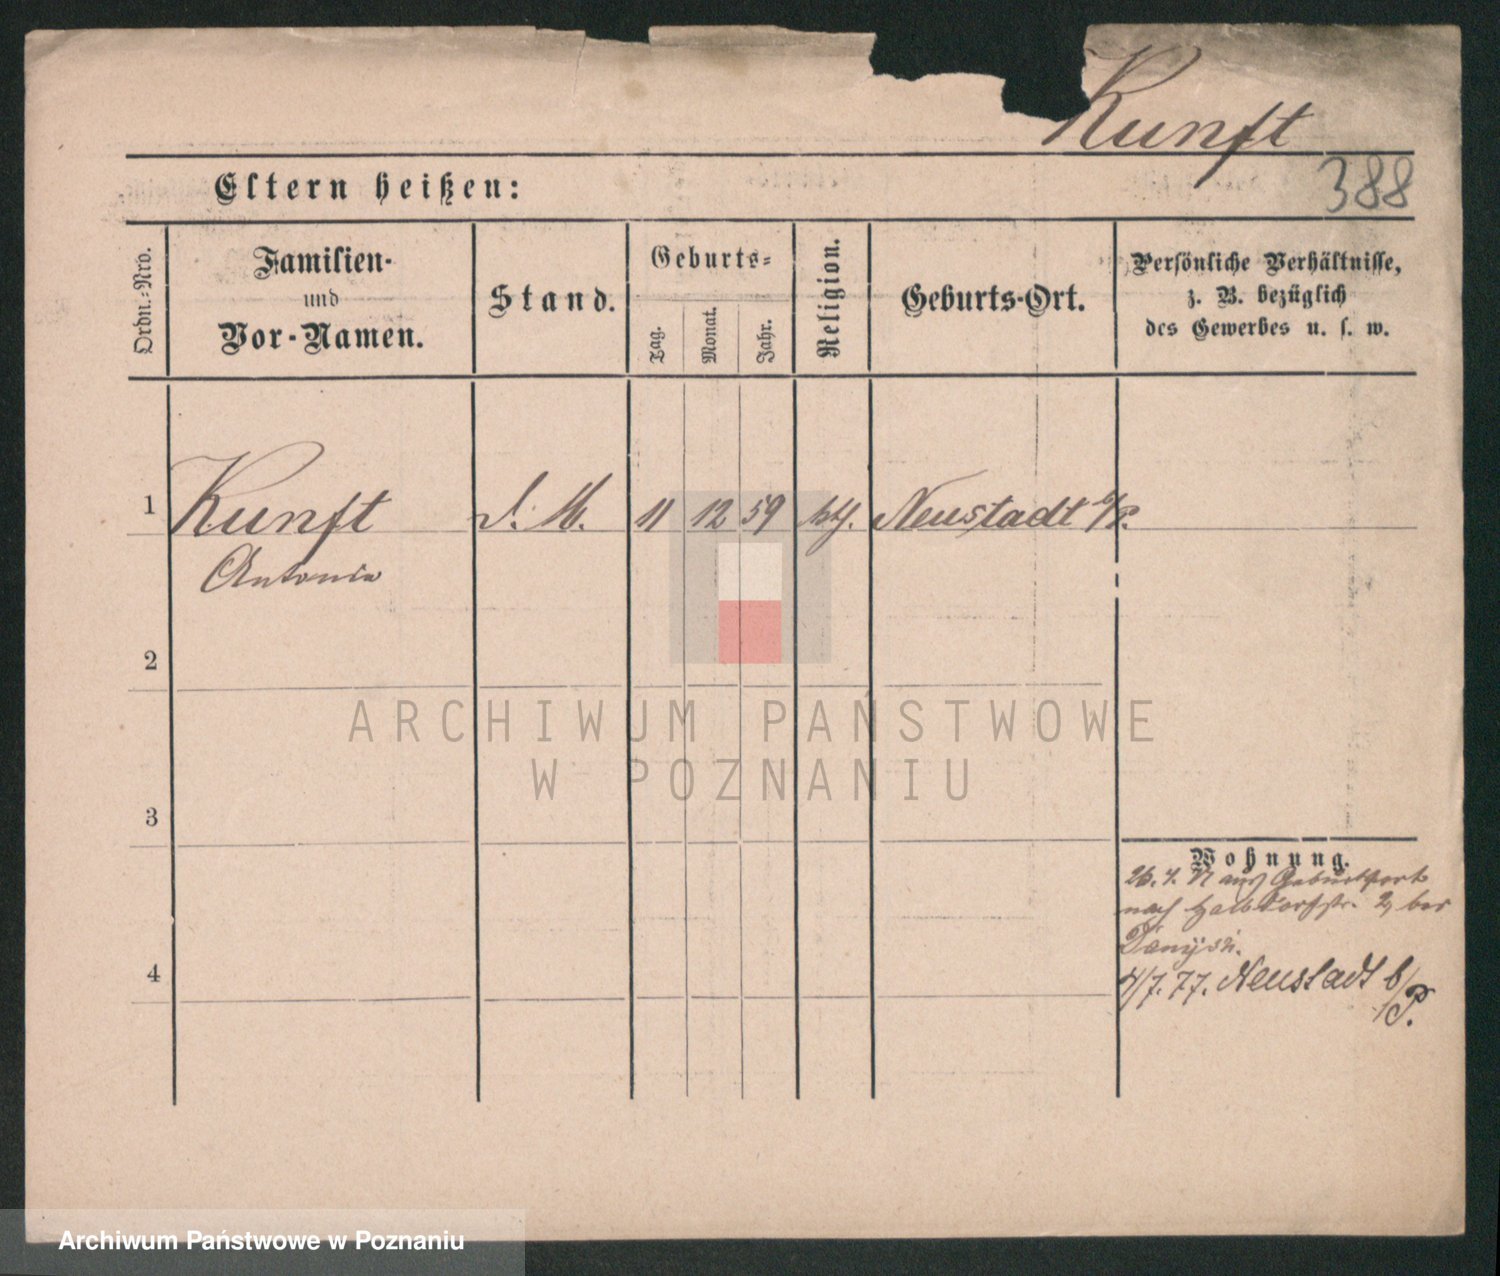 Kunft
388
Eltern heißen:
Ordn.-Nro.
Familien-
und
Vor-Namen.
Stand.
Geburts-
Tag.
Monat.
Jahr.
Religion.
Geburts-Ort.
Persönliche Verhältnisse,
z. B. bezüglich
des Gewerbes u. s. w.
1 Kunft d. M. 11 12 59 kth. Neustadt b/P.
Antonie
2
3
4
Wohnung.
26. 4. 77 aus Geburtsort
nach Halbdorfstr. 2, bei
4/7. 77. Neustadt b/P.
ARCHIWUM PAŃSTWOWE
W POZNANIU
Archiwum Państwowe w Poznaniu